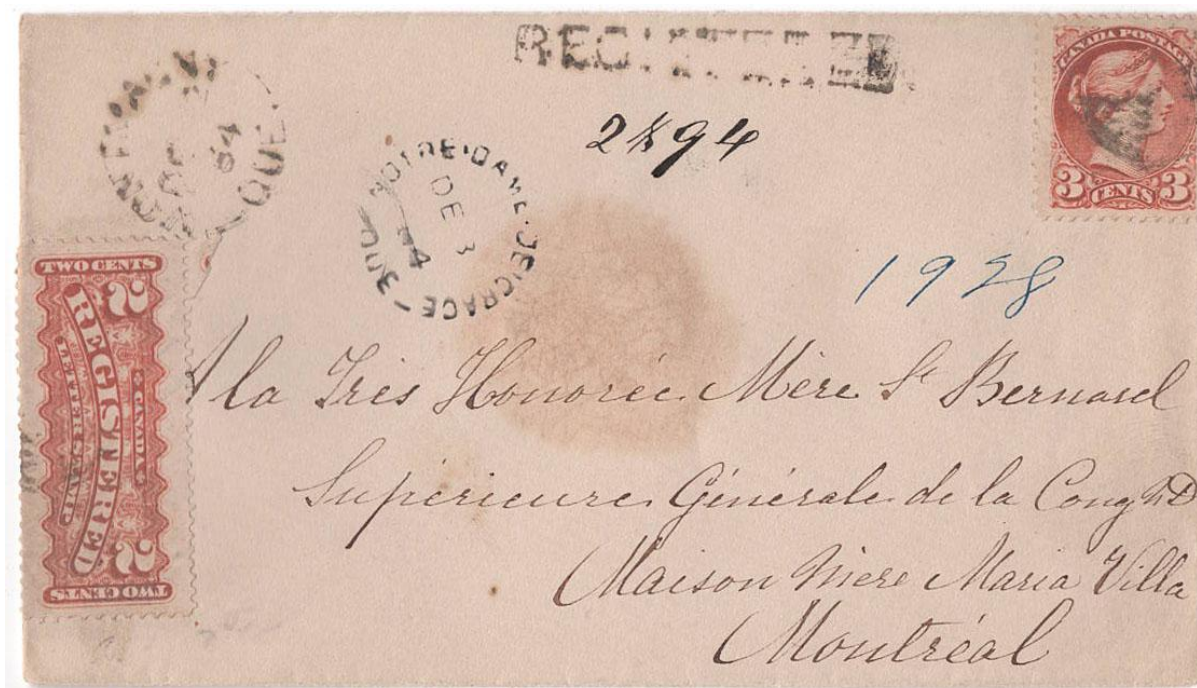 REGISTERED
CANADA POSTAGE
3 CENTS 3
2894
QUE
84
NOTRE·DAME·DE·GRACE
QUE
DE 3
4
1928
TWO CENTS
2 REGISTERED 2
CANADA
TWO CENTS
A la Très Honorée Mère St Bernard
Supérieure Générale de la Cong N D
Maison Mère Maria Villa
Montréal